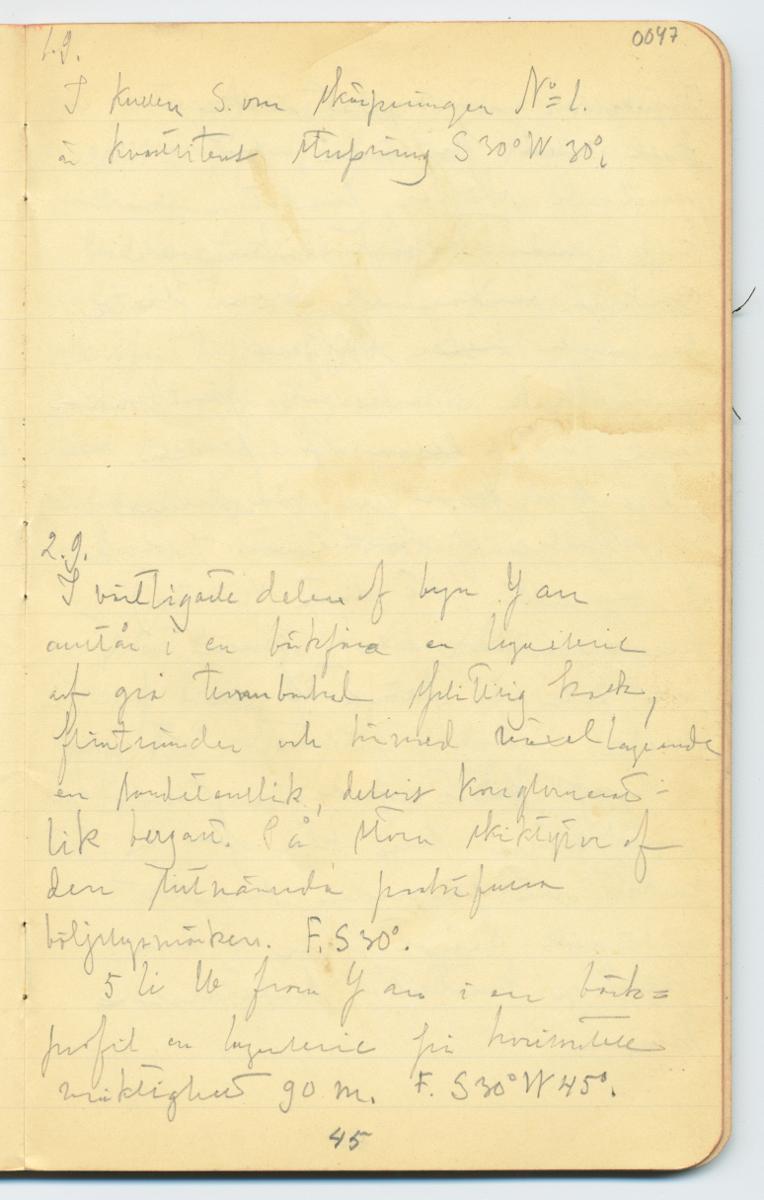 0047
1.9.
I kullen S. om skärpningen No 1.
är kvartsitens stupning S 30° W 30°.
2.9.
I västligaste delen af byn Yan
anstår i en bäckfåra en lagserie
af grå tunnbankad splittrig kalk,
och härmed växellagrande
en sandstenslik, delvis konglomerat-
lik bergart. På stora skiktytor af
den sistnämnda
böljslagsmärken. F. S 30°.
5 li W från Yan i en bäck=
profil en lagserie på horisontell
mäktighet 90 m. F. S 30° W 45°.
45